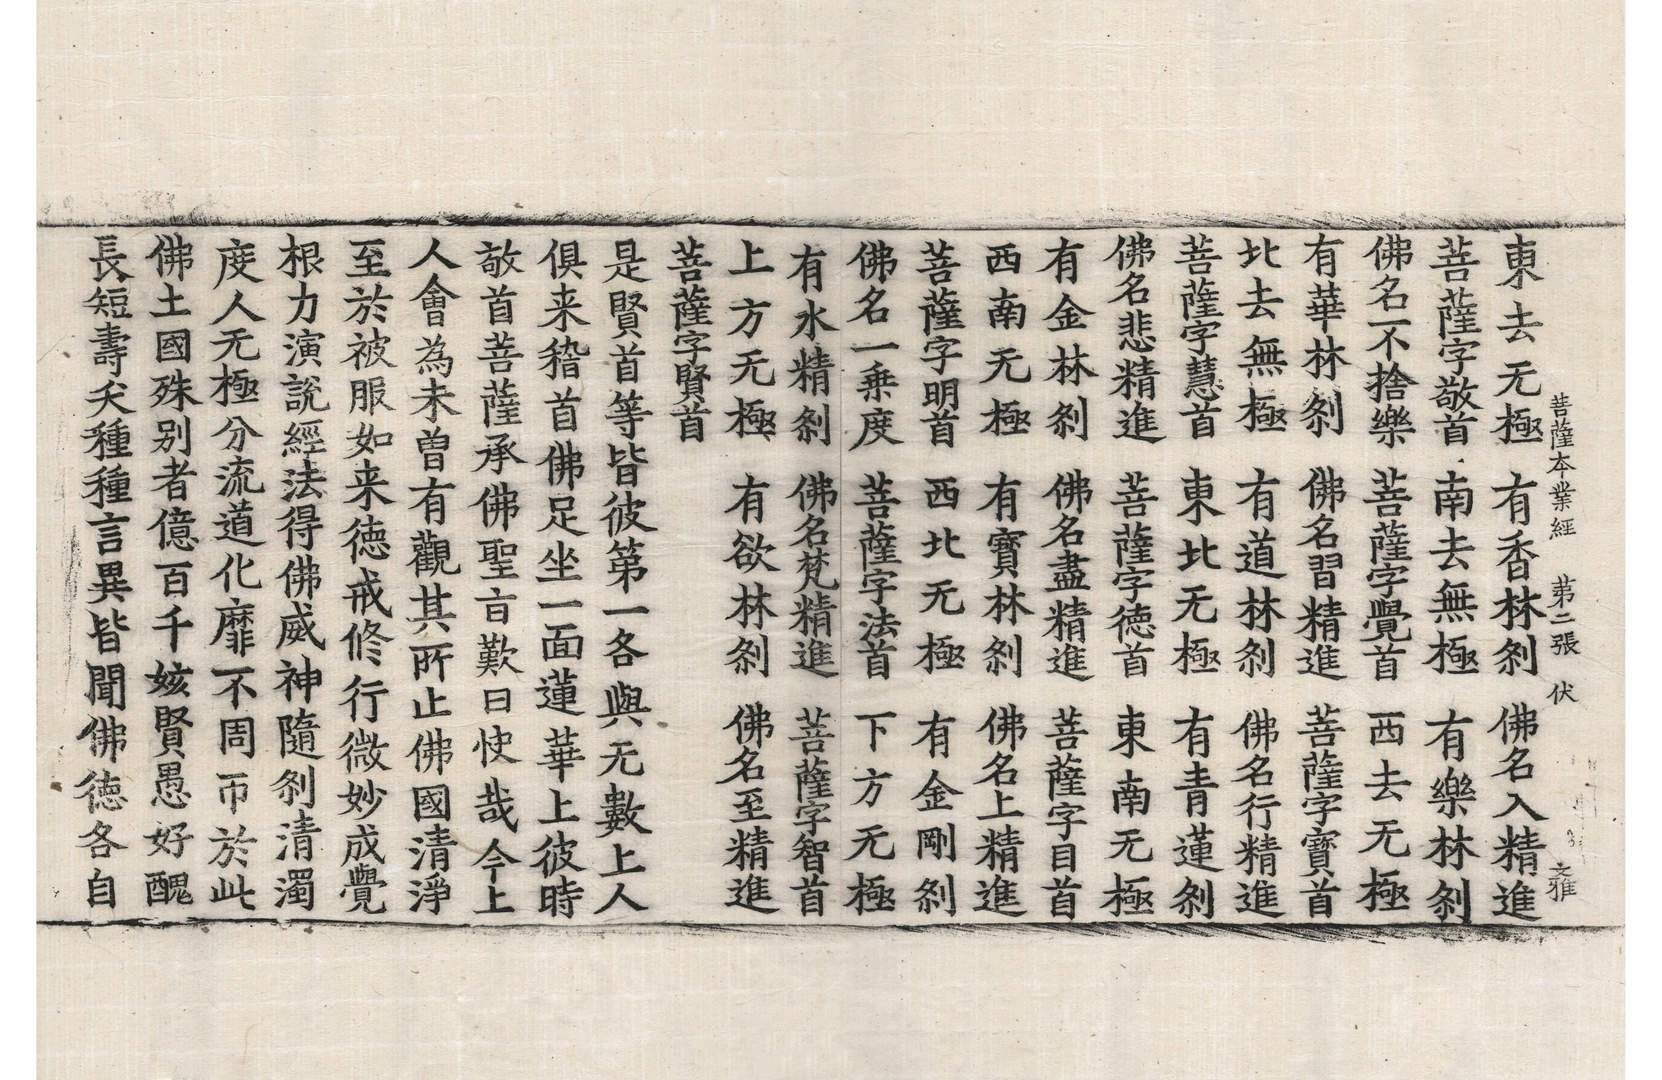 菩薩本業經 第二張 伏 文雅
東去无極 有香林刹 佛名入精進
菩薩字敬首 南去無極 有樂林刹
佛名不捨樂 菩薩字覺首 西去无極
有華林刹 佛名習精進 菩薩字寶首
北去無極 有道林刹 佛名行精進
菩薩字慧首 東北无極 有青蓮刹
佛名悲精進 菩薩字德首 東南无極
有金林刹 佛名盡精進 菩薩字目首
西南无極 有寶林刹 佛名上精進
菩薩字明首 西北无極 有金剛刹
佛名一乗度 菩薩字法首 下方无極
有水精刹 佛名梵精進 菩薩字智首
上方无極 有欲林刹 佛名至精進
菩薩字賢首
是賢首等皆彼第一各與无數上人
俱来稽首佛足坐一面蓮華上彼時
敬首菩薩承佛聖㫖歎曰快哉今上
人會為未曽有觀其所止佛國清淨
至於被服如来德戒修行微妙成覺
根力演説經法得佛威神隨刹清濁
度人无極分流道化靡不周帀於此
佛土國殊別者億百千姟賢愚好醜
長短壽夭種種言異皆聞佛德各自